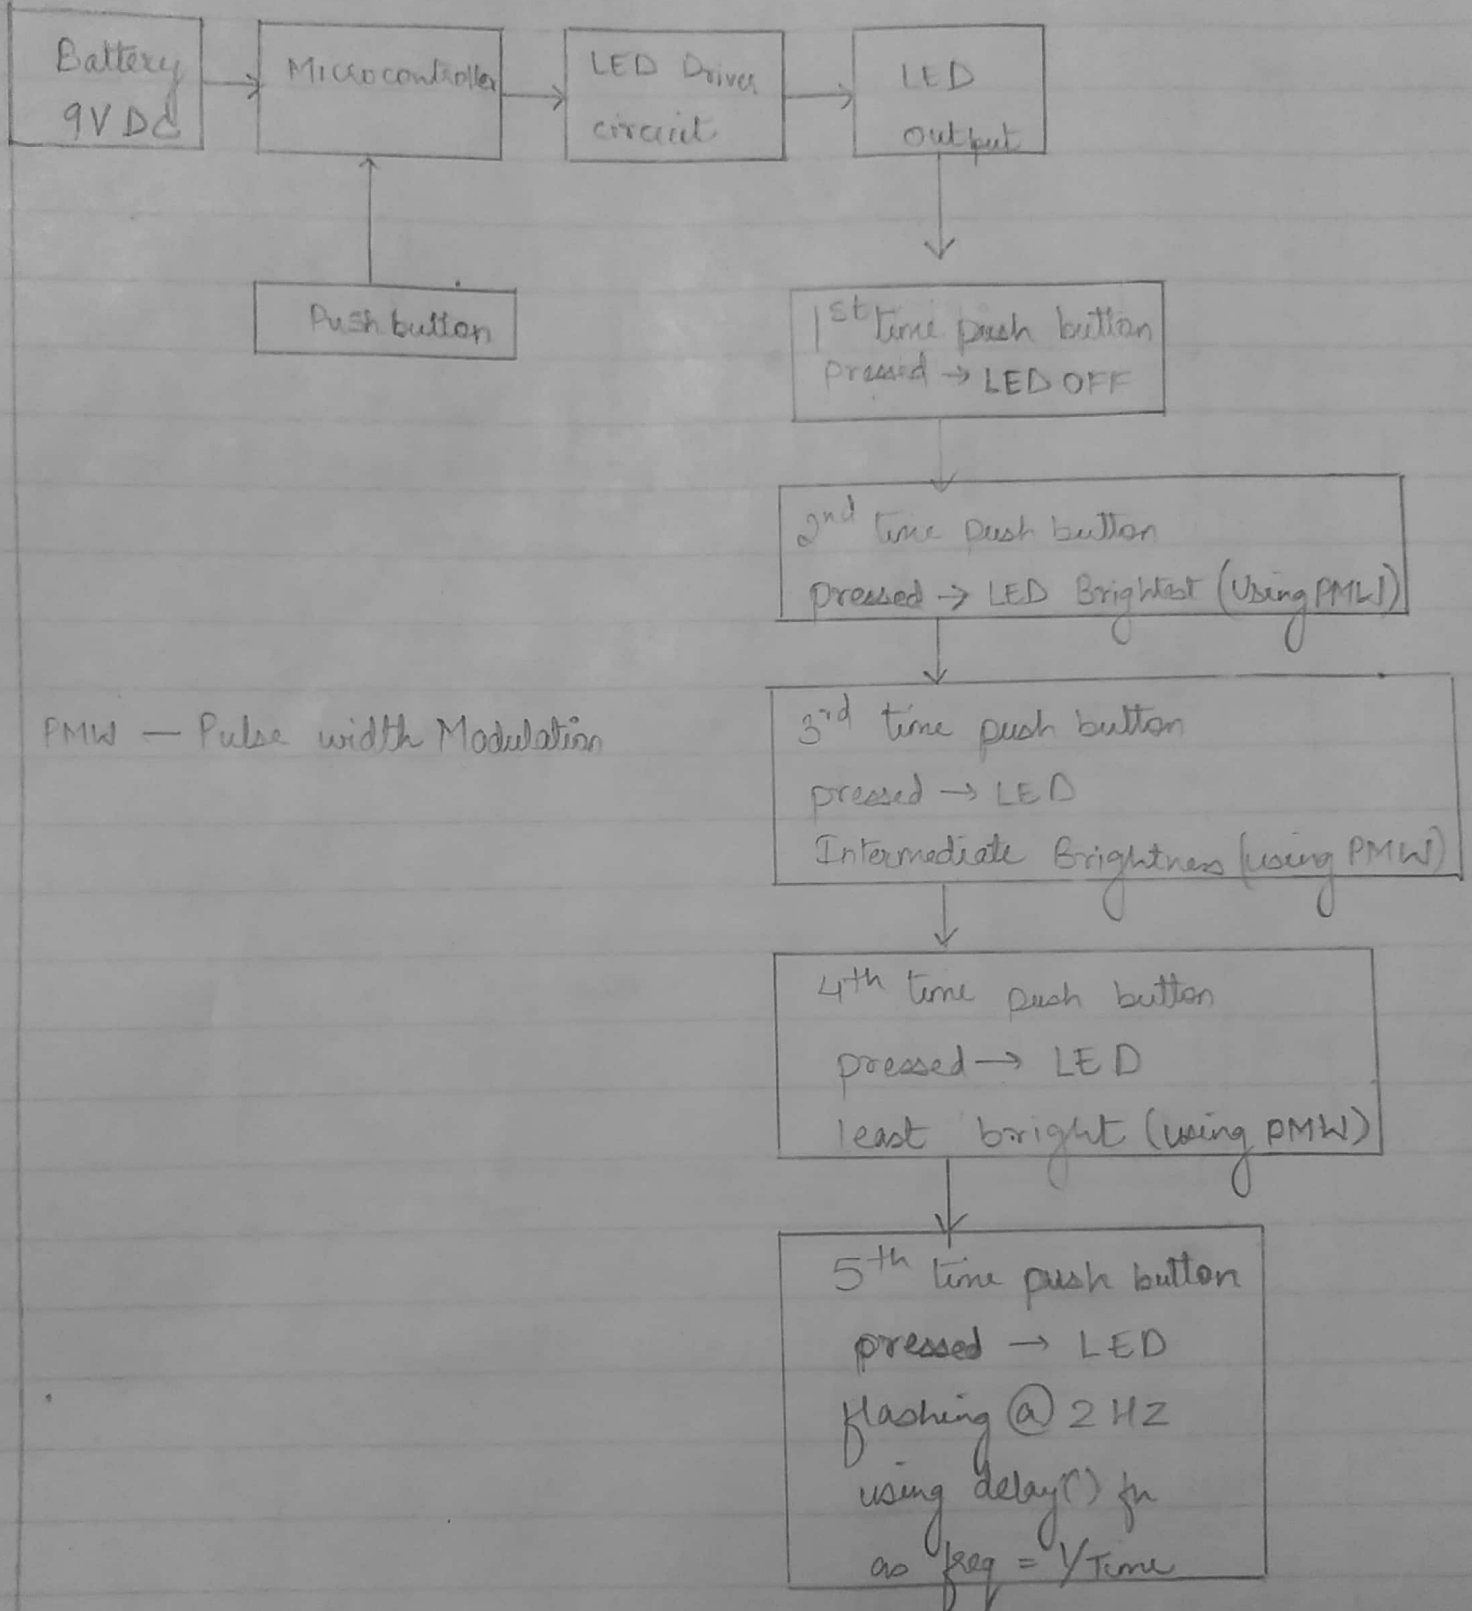 Battery
9V DC
Microcontroller
LED Driver
circuit
LED
output
Push button
1st time push button
pressed → LED OFF
2nd time push button
pressed → LED Brightest (Using PMW)
PMW — Pulse width Modulation
3rd time push button
pressed → LED
Intermediate Brightness (using PMW)
4th time push button
pressed → LED
least bright (using PMW)
5th time push button
pressed → LED
flashing @ 2 HZ
using delay() fn
as freq = 1/Time